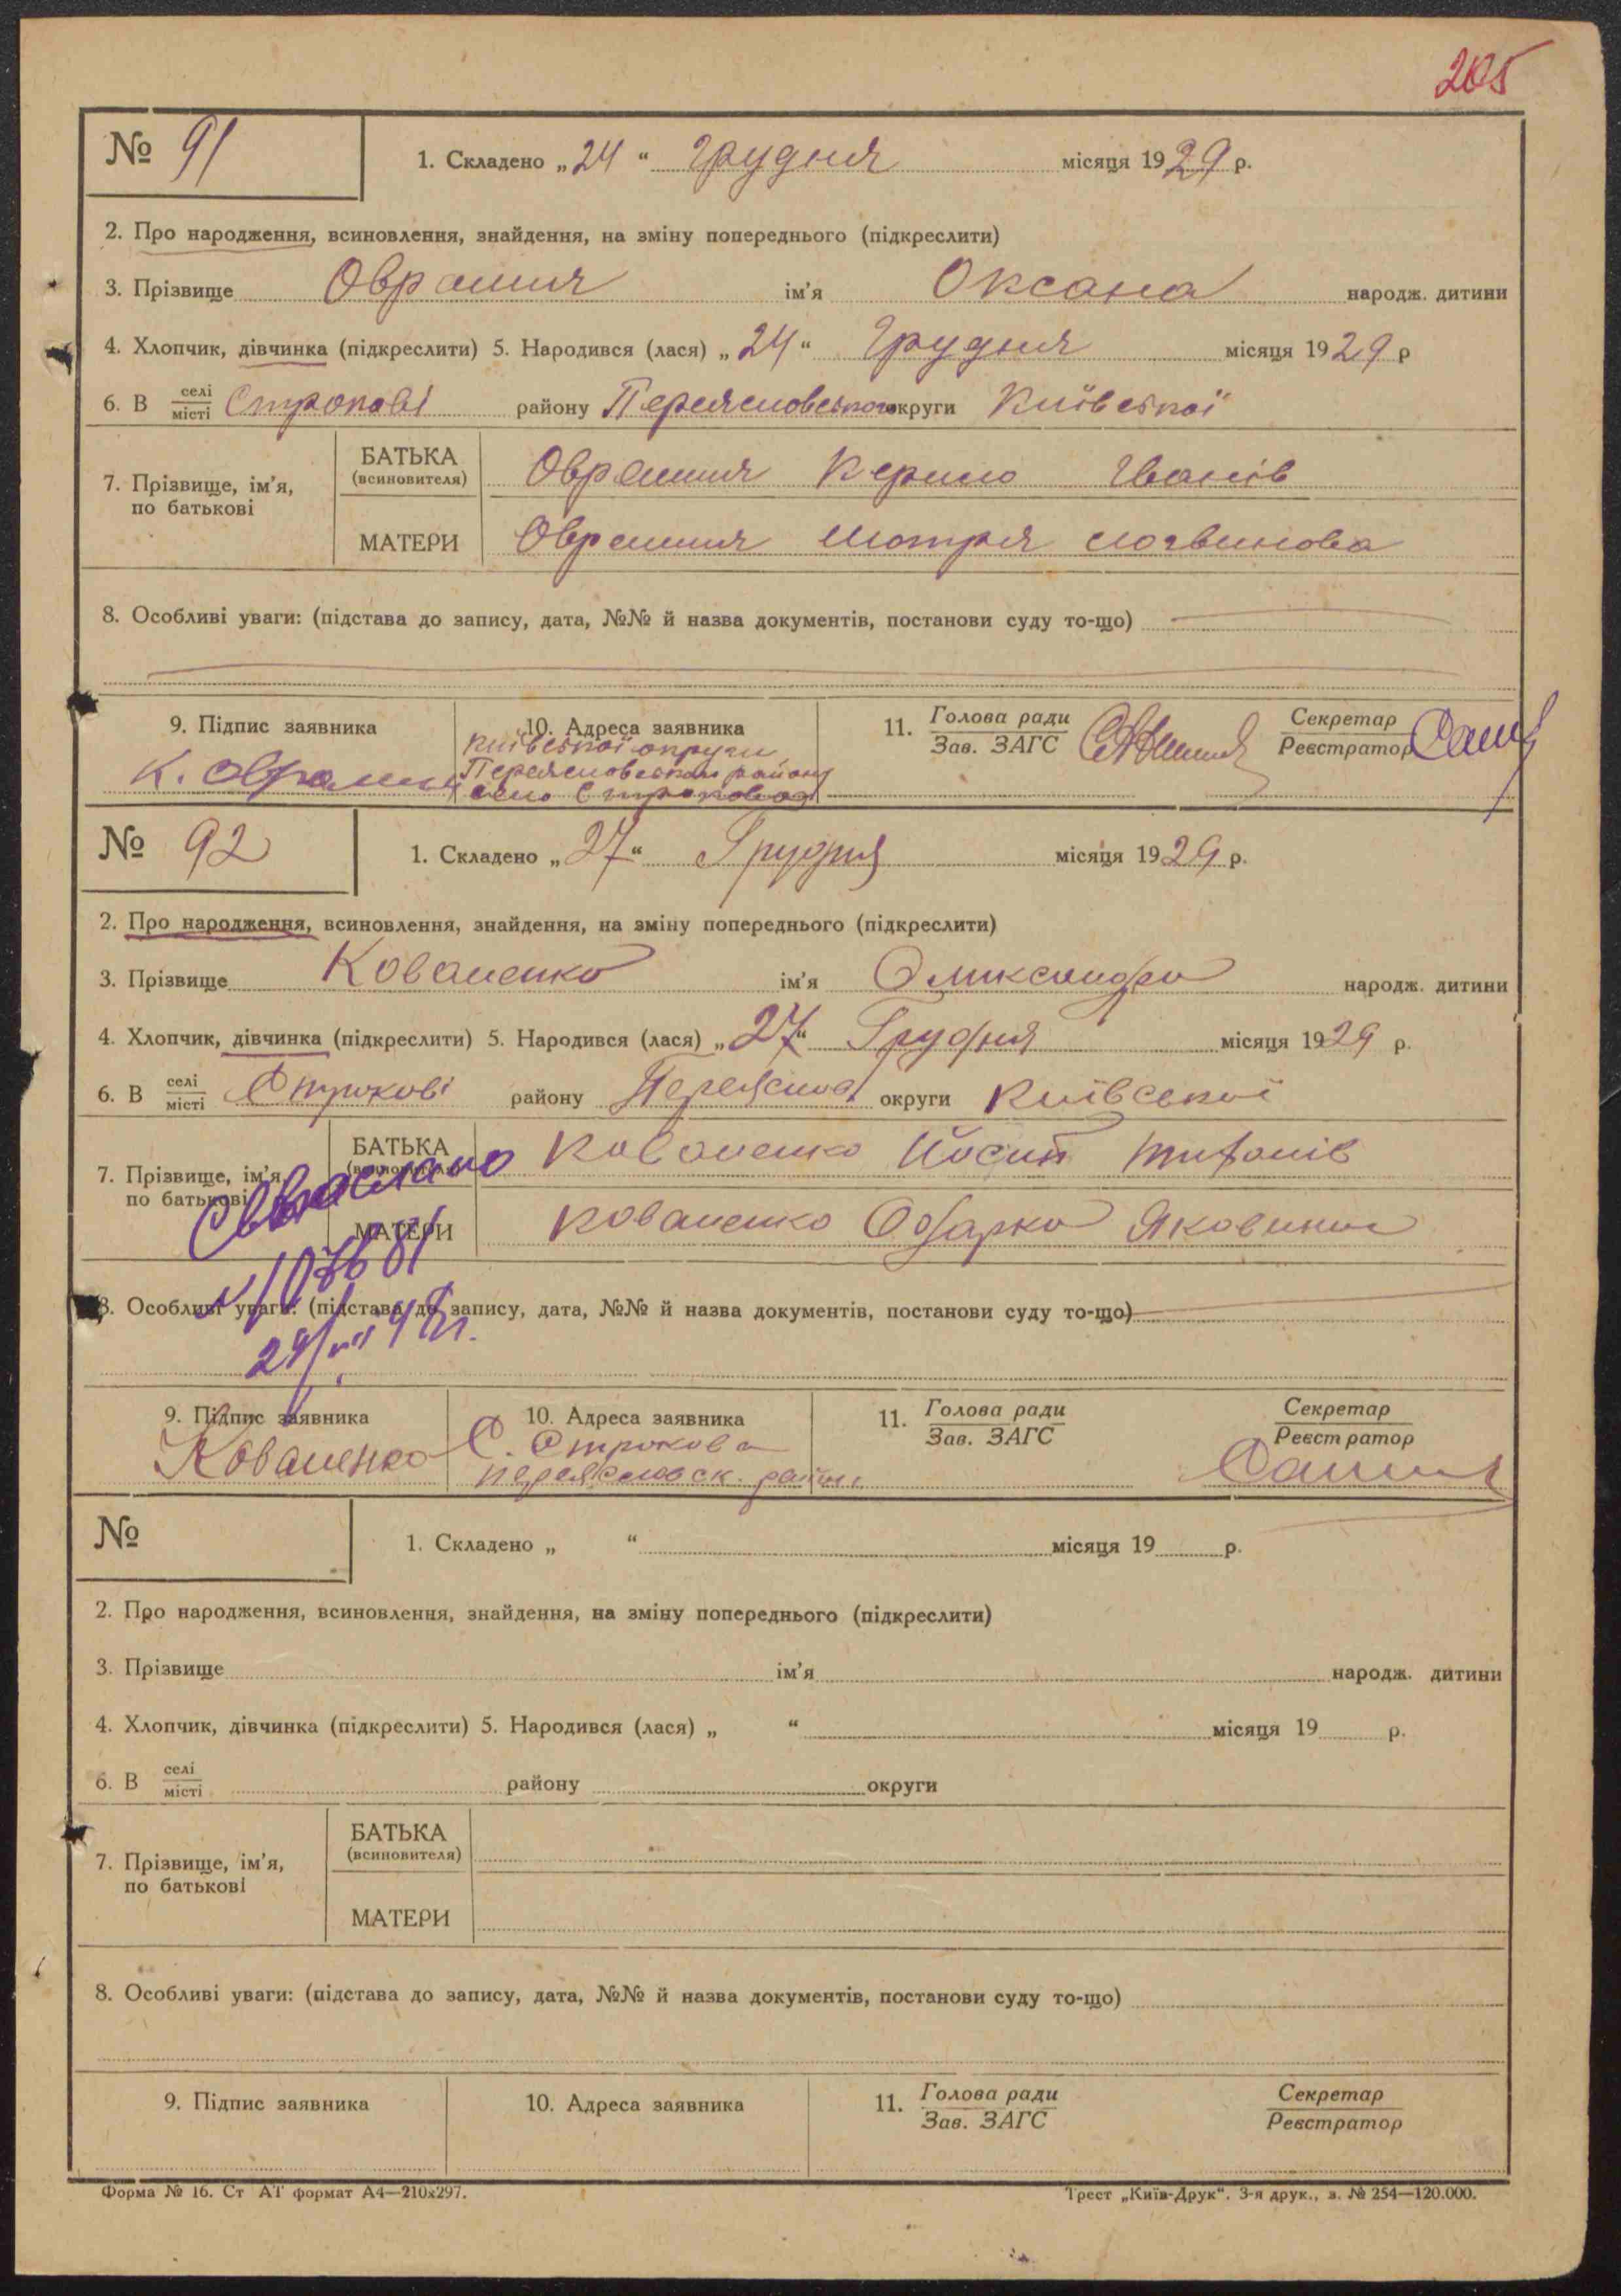 205
№ 91
1. Складено „24“ Грудня місяця 1929 р.
2. Про народження, всиновлення, знайдення, на зміну попереднього (підкреслити)
3. Прізвище Оврамия ім'я Оксана народж. дитини
4. Хлопчик, дівчинка (підкреслити) 5. Народився (лася) „24“ Грудня місяця 1929 р
6. В селі/місті Строкові району Переясловського округи Київської
7. Прізвище, ім'я, по батькові
БАТЬКА (всиновителя) Іванів
МАТЕРИ Мотря Логвинова
8. Особливі уваги: (підстава до запису, дата, №№ й назва документів, постанови суду то-що)
9. Підпис заявника К.
10. Адреса заявника
Київської округи
Переясловськог району
село Строкова
11. Голова ради / Зав. ЗАГС
Секретар / Реєстратор
№ 92
1. Складено „27“ Грудня місяця 1929 р.
2. Про народження, всиновлення, знайдення, на зміну попереднього (підкреслити)
3. Прізвище Коваленко ім'я Олександра народж. дитини
4. Хлопчик, дівчинка (підкреслити) 5. Народився (лася) „27“ Грудня місяця 1929 р.
6. В селі/місті Строкові району Переяслов округи Київської
7. Прізвище, ім'я, по батькові
БАТЬКА (всиновителя) Коваленко Йосип
МАТЕРИ Коваленко Одарка Яковина
8. Особливі уваги: (підстава до запису, дата, №№ й назва документів, постанови суду то-що)
9. Підпис заявника Коваленко
10. Адреса заявника
С. Строкова
Переясловск. район
11. Голова ради / Зав. ЗАГС
Секретар / Реєстратор
№
1. Складено „ “ місяця 19 р.
2. Про народження, всиновлення, знайдення, на зміну попереднього (підкреслити)
3. Прізвище ім'я народж. дитини
4. Хлопчик, дівчинка (підкреслити) 5. Народився (лася) „ “ місяця 19 р.
6. В селі/місті району округи
7. Прізвище, ім'я, по батькові
БАТЬКА (всиновителя)
МАТЕРИ
8. Особливі уваги: (підстава до запису, дата, №№ й назва документів, постанови суду то-що)
9. Підпис заявника
10. Адреса заявника
11. Голова ради / Зав. ЗАГС
Секретар / Реєстратор
Форма № 16. Ст АТ формат А4—210х297.
Трест „Київ-Друк“. 3-я друк., з. № 254—120.000.